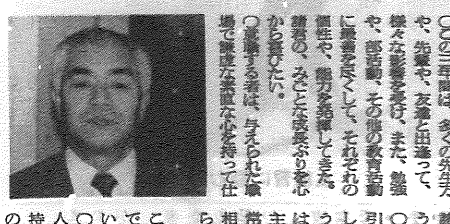 〇〇の三年間は、多くの先生方
や、先輩や、友達と出逢って、
様々な影響を受け、また、勉強
や、部活動、その他の教育活動
に最善を尽くして、それぞれの
個性や、能力を発揮してきた。
諸君の、みごとな成長ぶりを心
から喜びたい。
〇就職する者は、与えられた職
場で謙虚な素直な心を持って仕
う
〇
引
し
う
は
主
常
相
ら
こ
で
い
〇
人
持
の